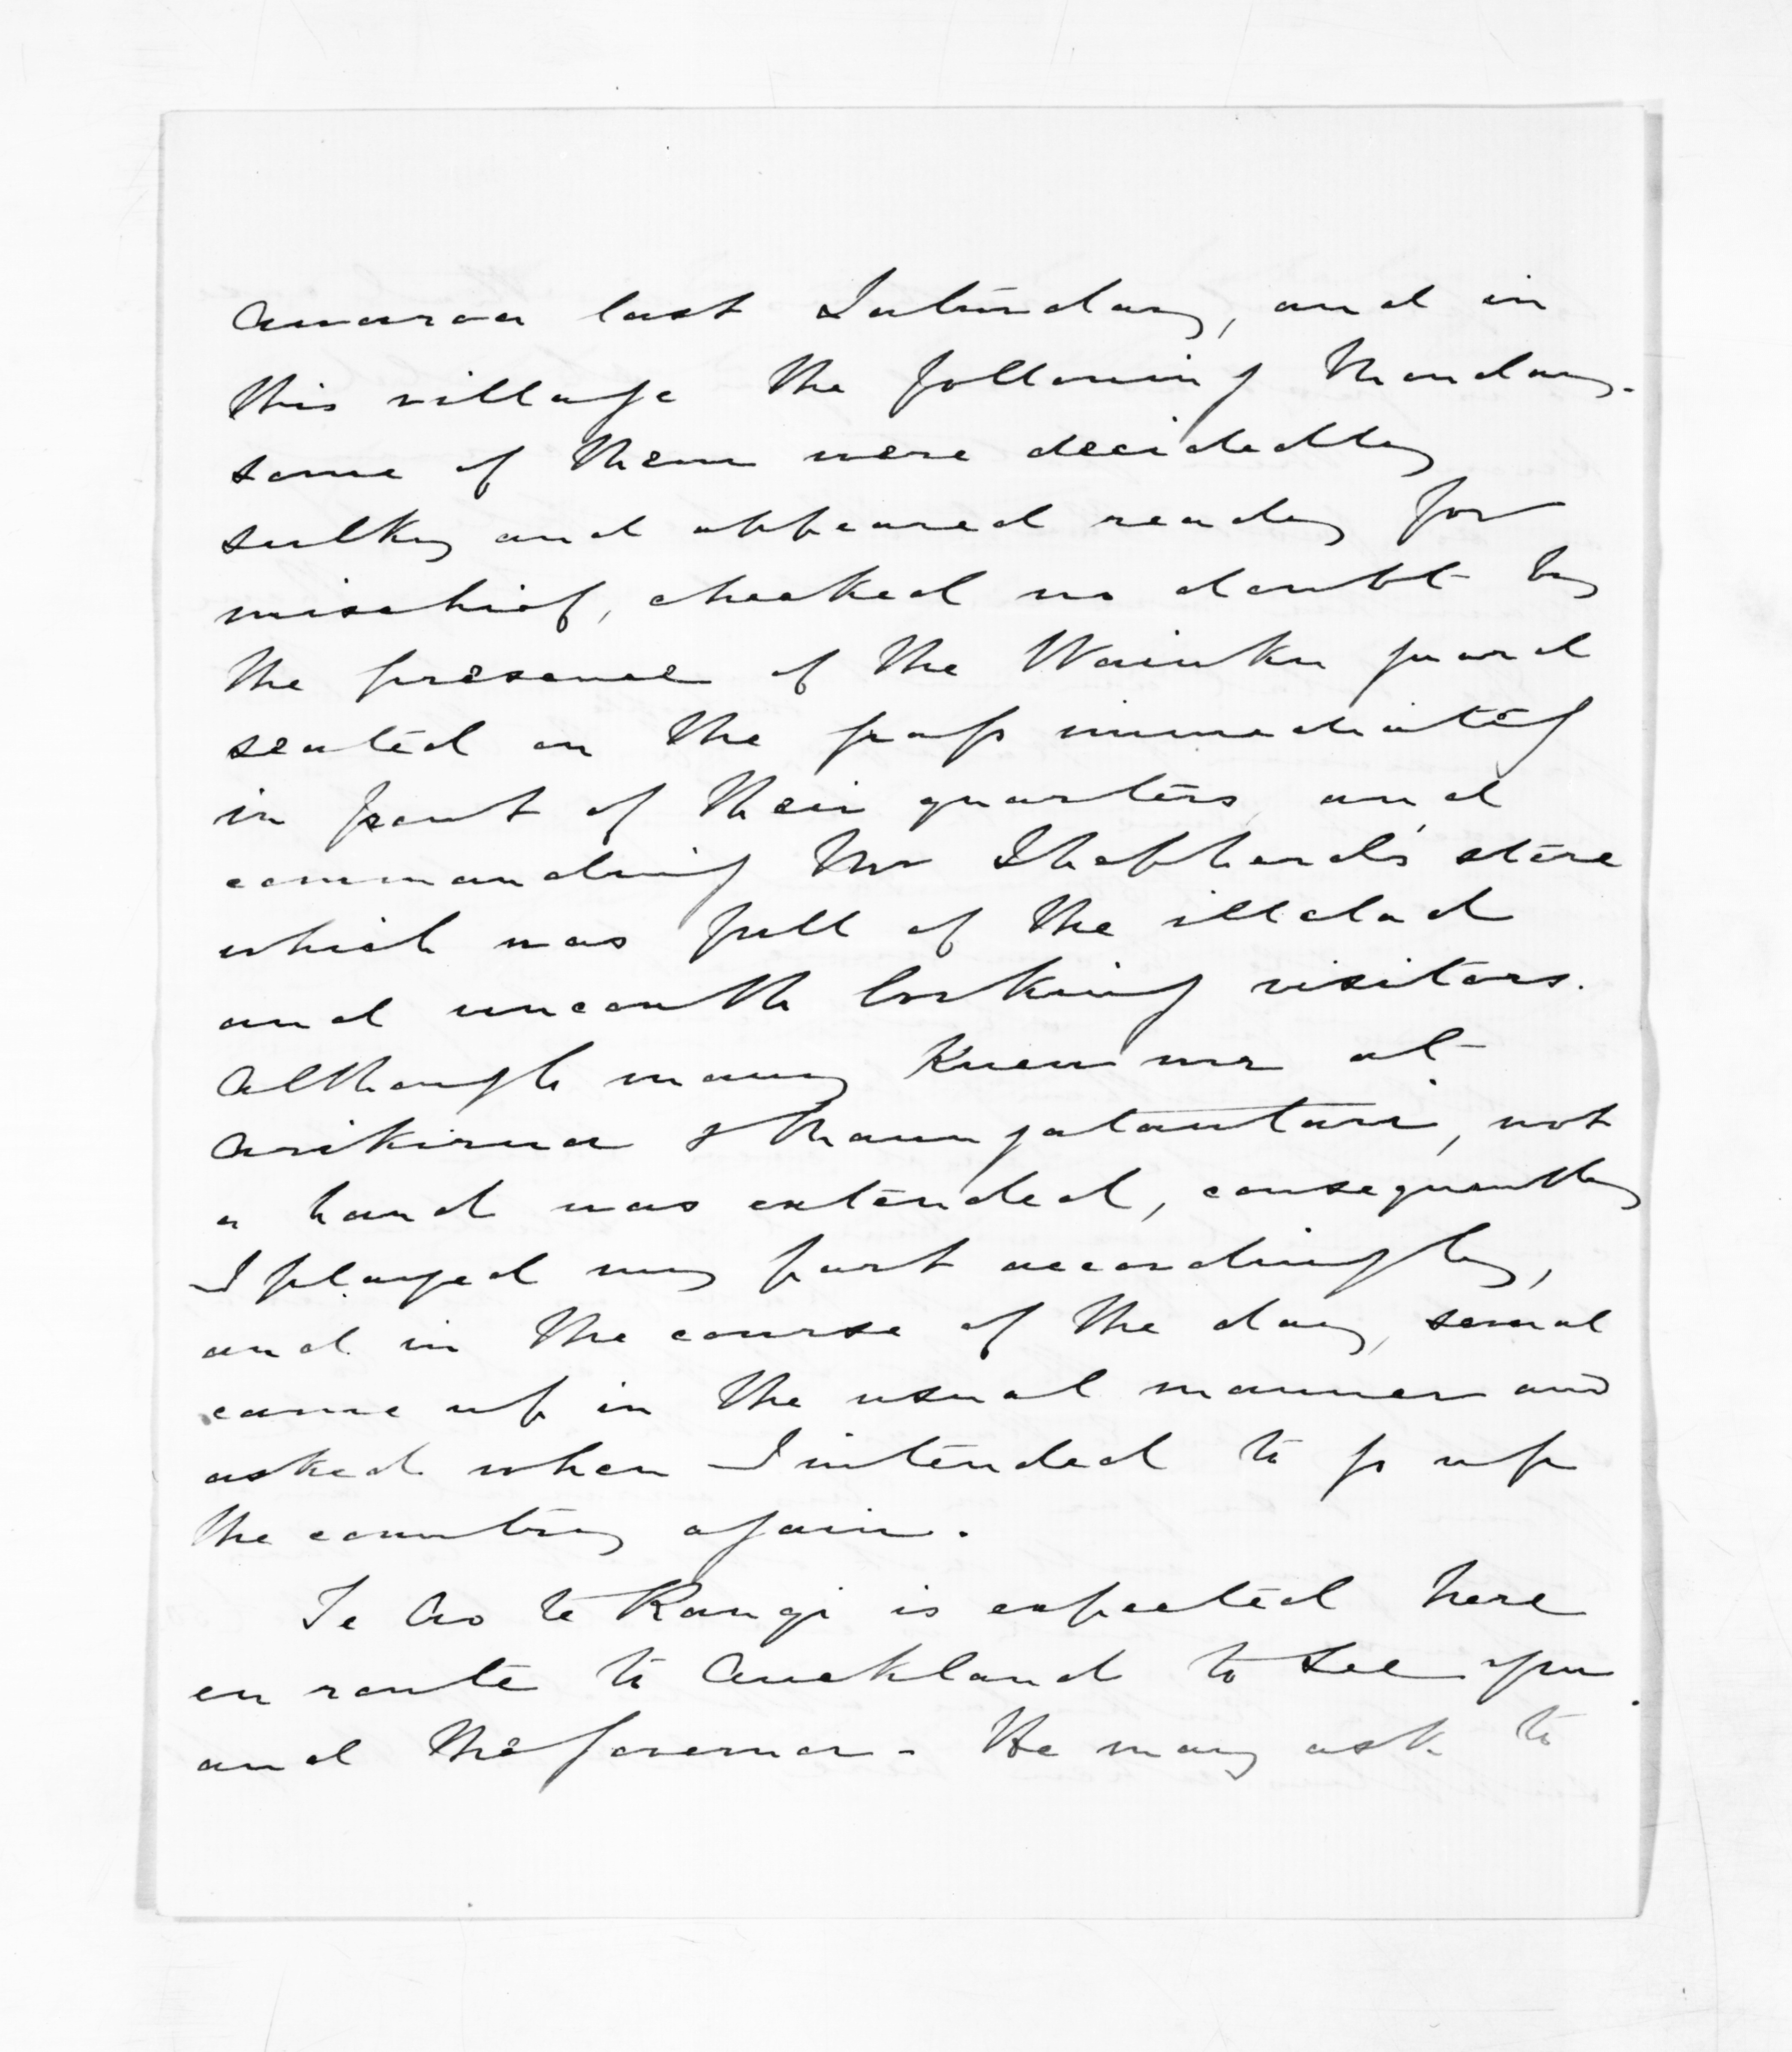 Awaroa last Saturday, and in
this village the following Monday.
some of them were decidedly
sulky and appeared ready for
mischief, checked no doubt by
the presence of the Waiuku guard
seated on the grass immediately
in front of their quarters, and
commanding Mr Shepherd's store
which was full of the illclad
and uncouth looking visitors.
Although many knew me at
Arikirua & Maungatautari, not
a hand was extended, consequently
I played my part accordingly,
and in the course of the day, several
came up in the usual manner and
asked when I intended to go up
the country again.
Te Ao te Rangi is expected here
en route to Auckland to see you
and the Governor. He may ask to